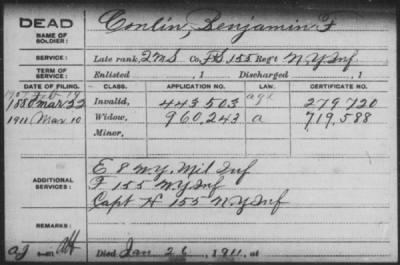 DEAD
NAME OF SOLDIER: Conlin, Benjamin F
SERVICE: Late rank, 2 M S Co. F.S 155 Reg't N.Y. Inf
TERM OF SERVICE: Enlisted , 1 Discharged , 1
DATE OF FILING. CLASS. APPLICATION NO. CERTIFICATE NO.
Feb 19
Mar 22 Invalid, 443 503 279 720
1911 Mar 10 Widow, 960,243 a 719,588
Minor,
ADDITIONAL SERVICES: E 8 N.Y. Mil Inf
F 155 N.Y Inf
Capt H 155 N.Y Inf
REMARKS:
Died Jan 26, 1911, at